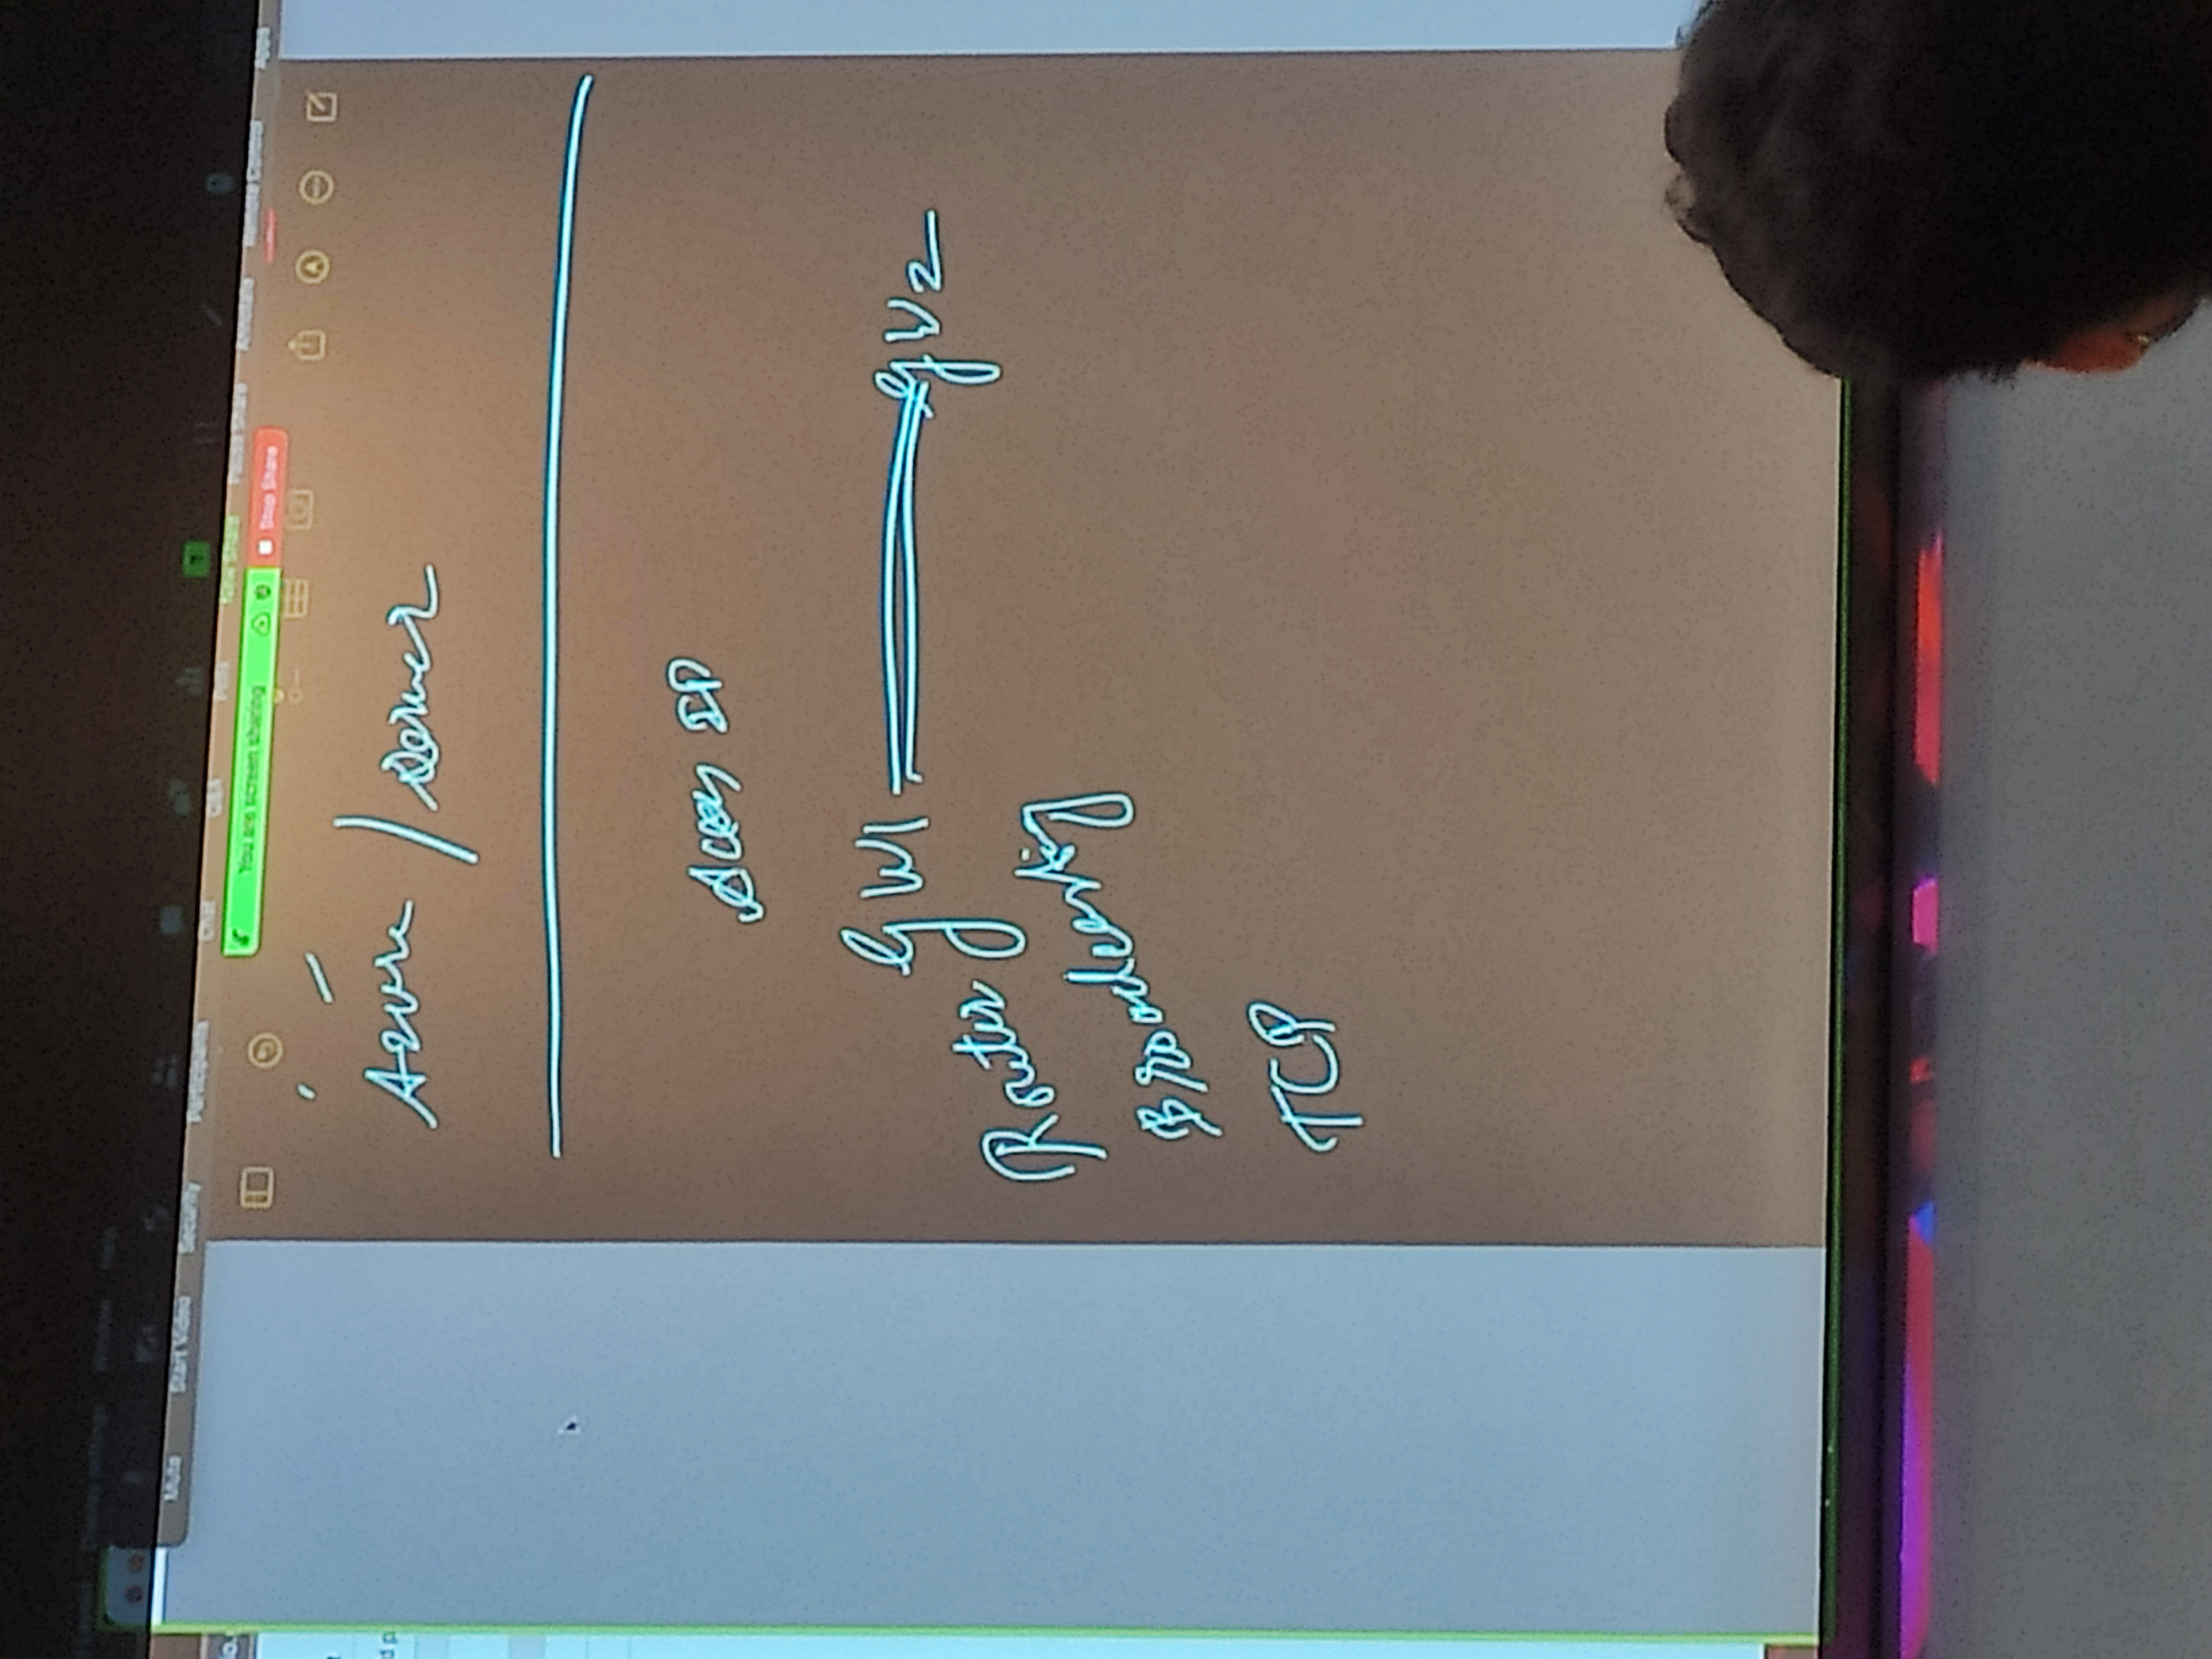 Mute Start Video Security Participants Chat Q&A Polls New Share Pause Share Annotate Remote Control Apps
You are screen sharing Stop Share
Azure / Server
Access ID
GW1 GW2
Router
Broadcasting
TCP